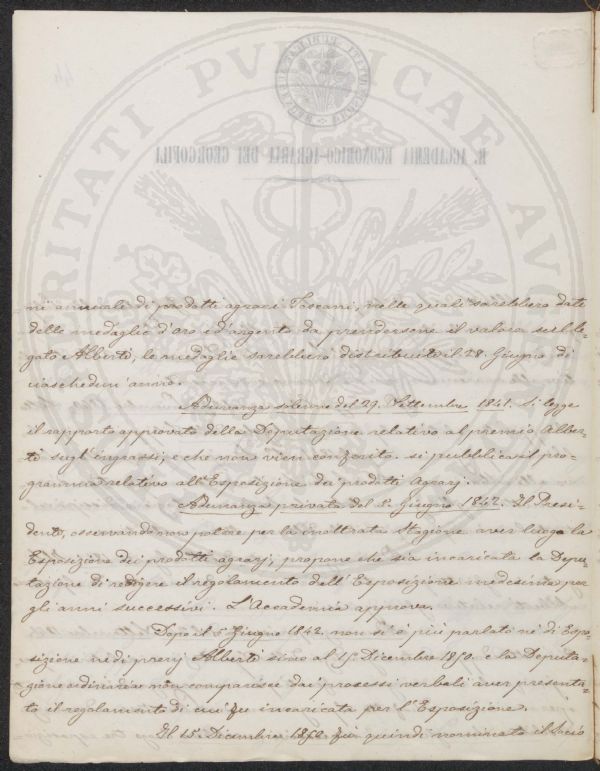 R. ACCADEMIA ECONOMICO-AGRARIA DEI GEORGOFILI
PROSPERITATI PUBLICAE AUGENDAE
ni annuali di prodotti agrarj Toscani, nelle quali sarebbero date
delle medaglie d'oro e d'argento da prendersene il valore sul le-
gato Alberti, le medaglie sarebbero distribuite il 28. Giugno di
ciaschedun anno.
Adunanza solenne del 29. Settembre 1841. Si legge
il rapporto approvato della Deputazione relativo al premio Alber-
ti sugl'ingrassi, e che non vien conferito. si pubblica il pro-
gramma relativo all'Esposizione dei prodotti Agrarj.
Adunanza privata del Giugno 1842. Il Presi-
dente, osservando non potere per la inoltrata Stagione aver luogo la
Esposizione dei prodotti agrarj, propone che sia incaricata la Depu-
tazione di redigere il regolamento dell'Esposizione medesima per
gli anni successivi. L'Accademia approva.
Dopo il Giugno 1842. non si è più parlato nè di Espo-
sizione nè di premj Alberti sino al 15. Dicembre 1850. e la Deputa-
zione ordinaria non comparisce dai processi verbali aver presenta-
to il regolamento di cui fu incaricata per l'Esposizione.
Il 15. Dicembre 1850 fu quindi nominato il Socio